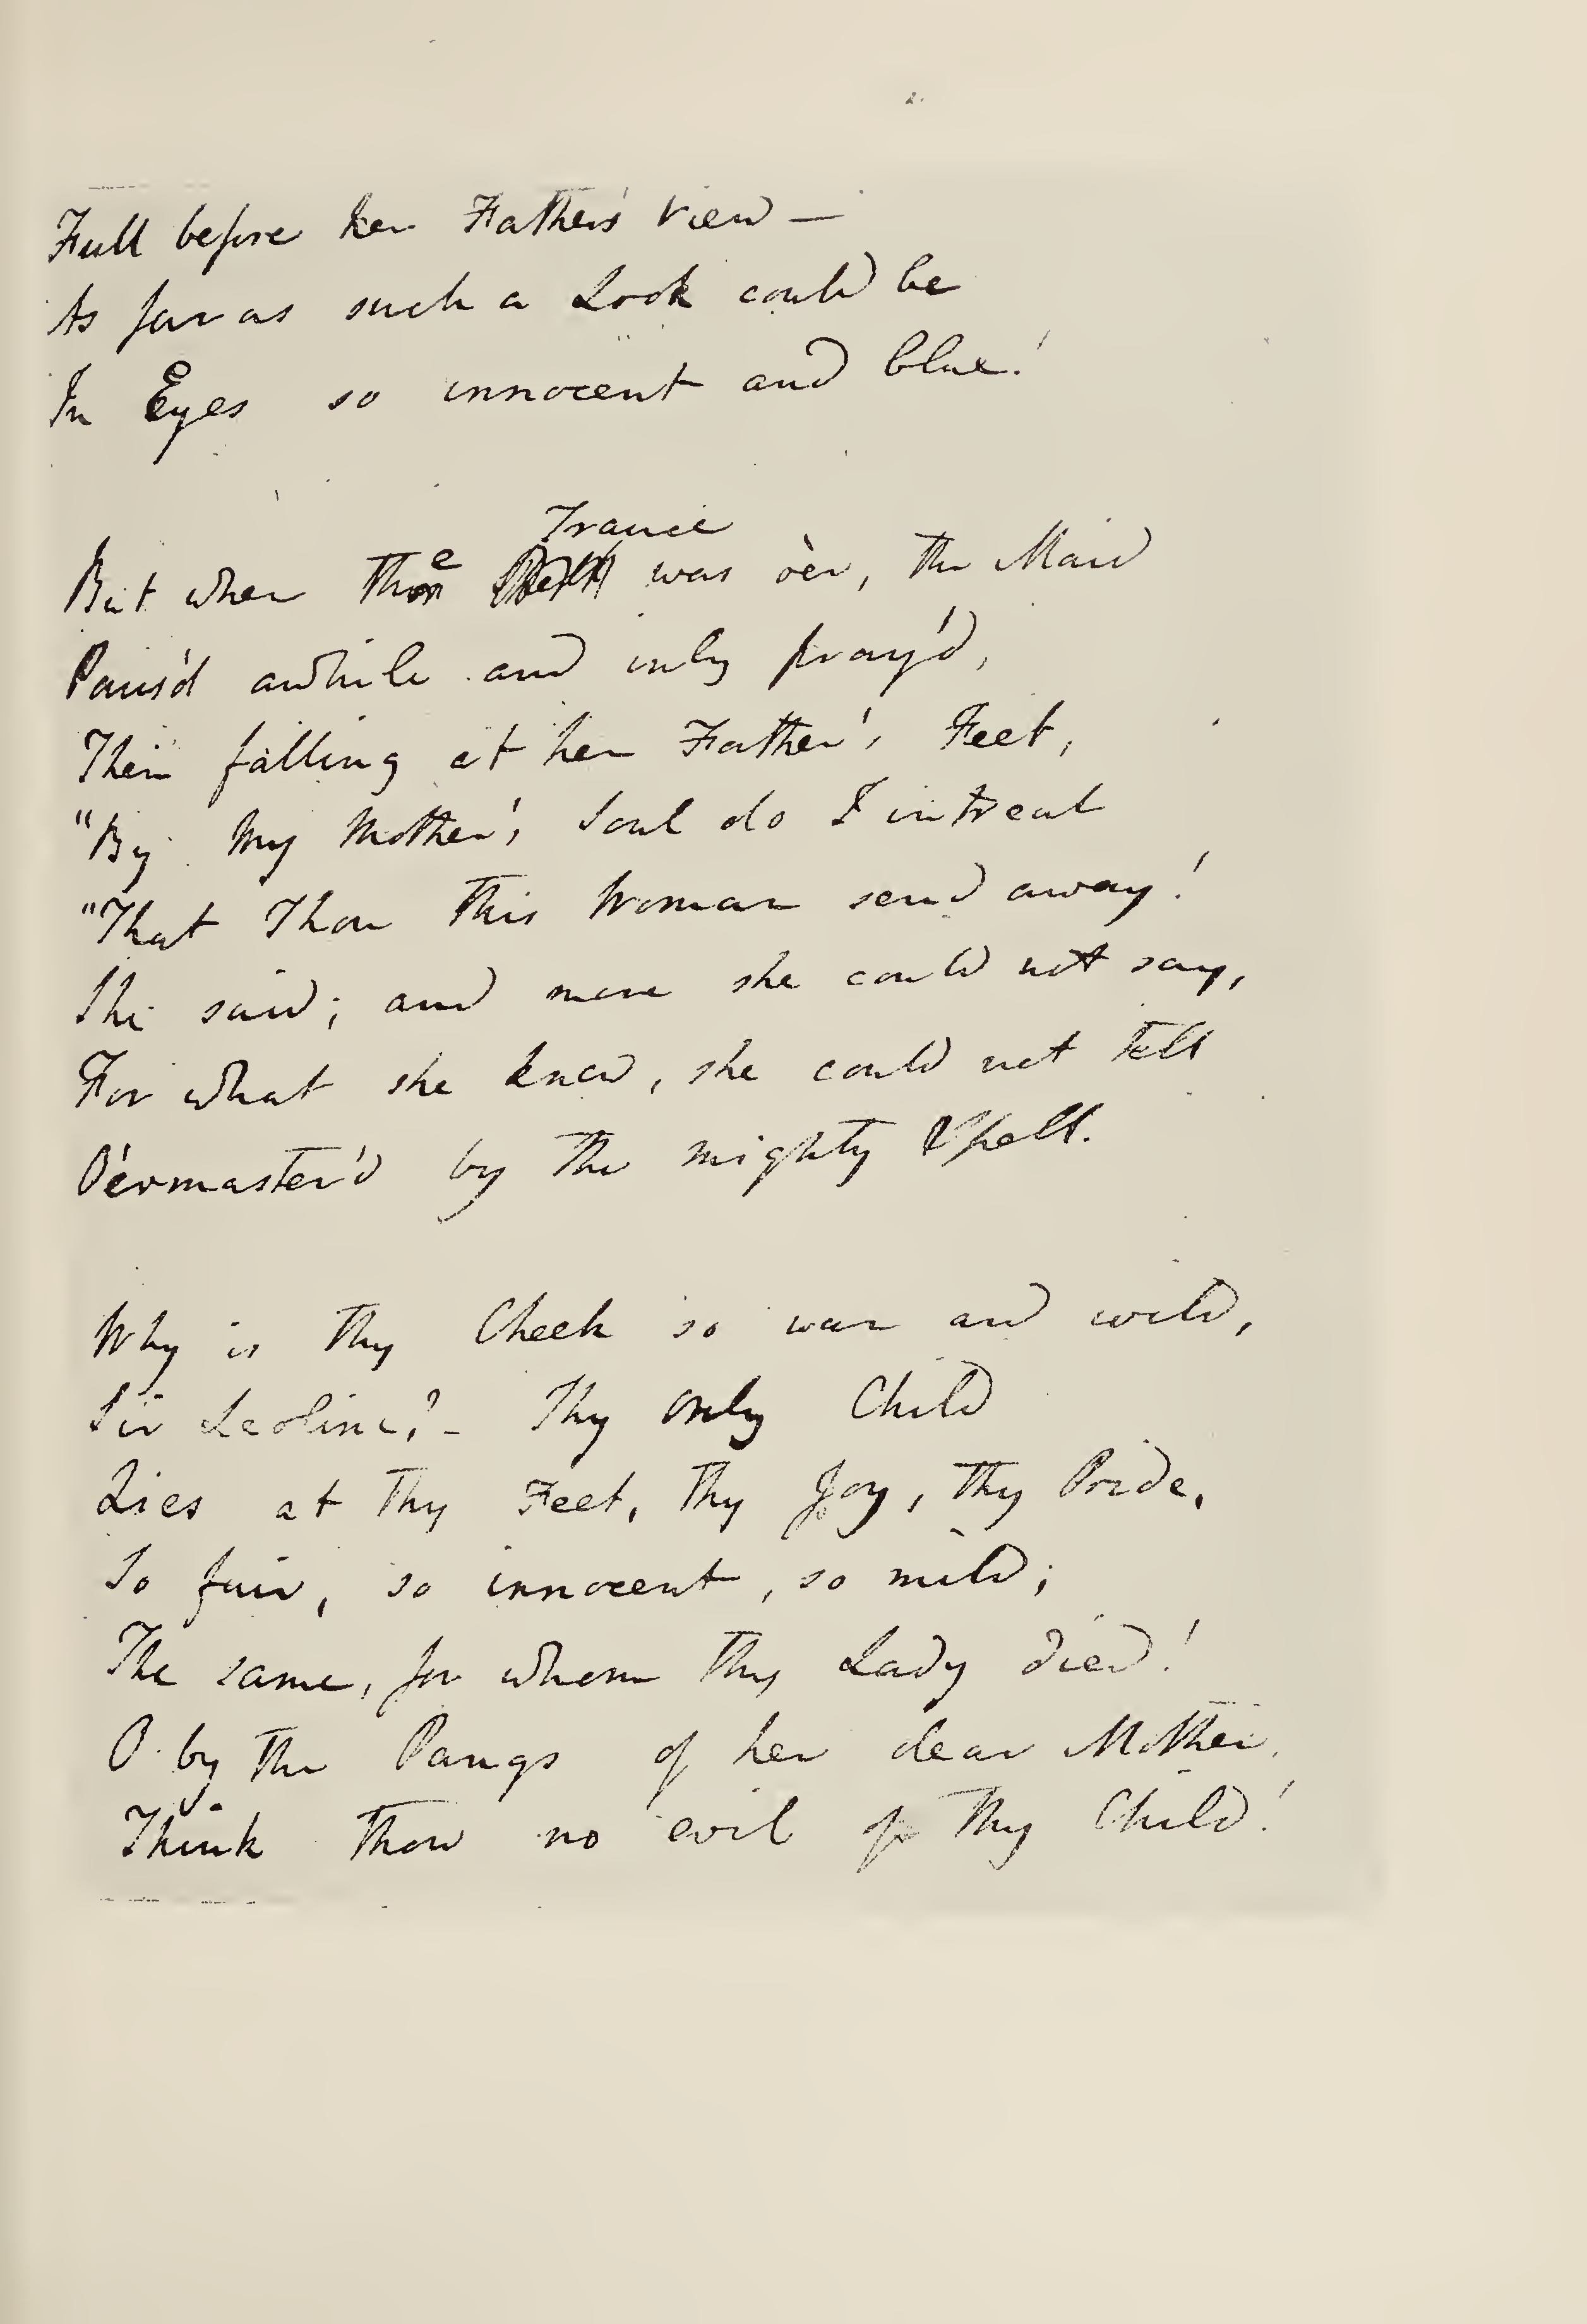 Full before her Father's View —
As far as such a Look could be
In Eyes so innocent and blue!
Trance
But when the was o'er, the Maid
Paus'd awhile and only pray'd,
Then falling at her Father's Feet,
"By my Mother's Soul do I intreat
"That Thou this Woman send away!
She said; and more she could not say,
For what she knew, she could not tell
O'ermaster'd by the mighty Spell.
Why is thy Cheek so wan and wild,
Sir Leoline? - Thy only Child
Lies at thy Feet, thy Joy, thy Pride,
So fair, so innocent, so mild;
The same, for whom thy Lady died!
O by the Pangs of her dear Mother
Think thou no evil of thy Child!